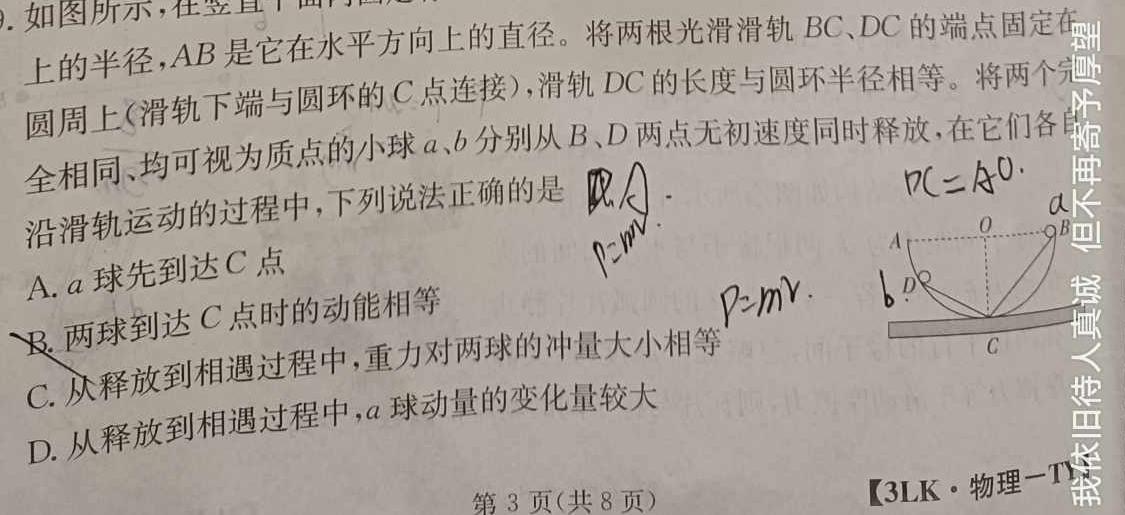 如图所示,在竖直平面内固定
上的半径,AB是它在水平方向上的直径。将两根光滑滑轨BC、DC的端点固定在
圆周上(滑轨下端与圆环的C点连接),滑轨DC的长度与圆环半径相等。将两个完
全相同、均可视为质点的小球a、b分别从B、D两点无初速度同时释放,在它们各自
沿滑轨运动的过程中,下列说法正确的是 A.
DC=AO.
P=mv.
a
A O B
b D
C
A. a球先到达C点
B. 两球到达C点时的动能相等
P=mv.
C. 从释放到相遇过程中,重力对两球的冲量大小相等
D. 从释放到相遇过程中,a球动量的变化量较大
第 3 页(共 8 页)
【3LK·物理-TY
我依旧待人真诚 但不再寄予厚望